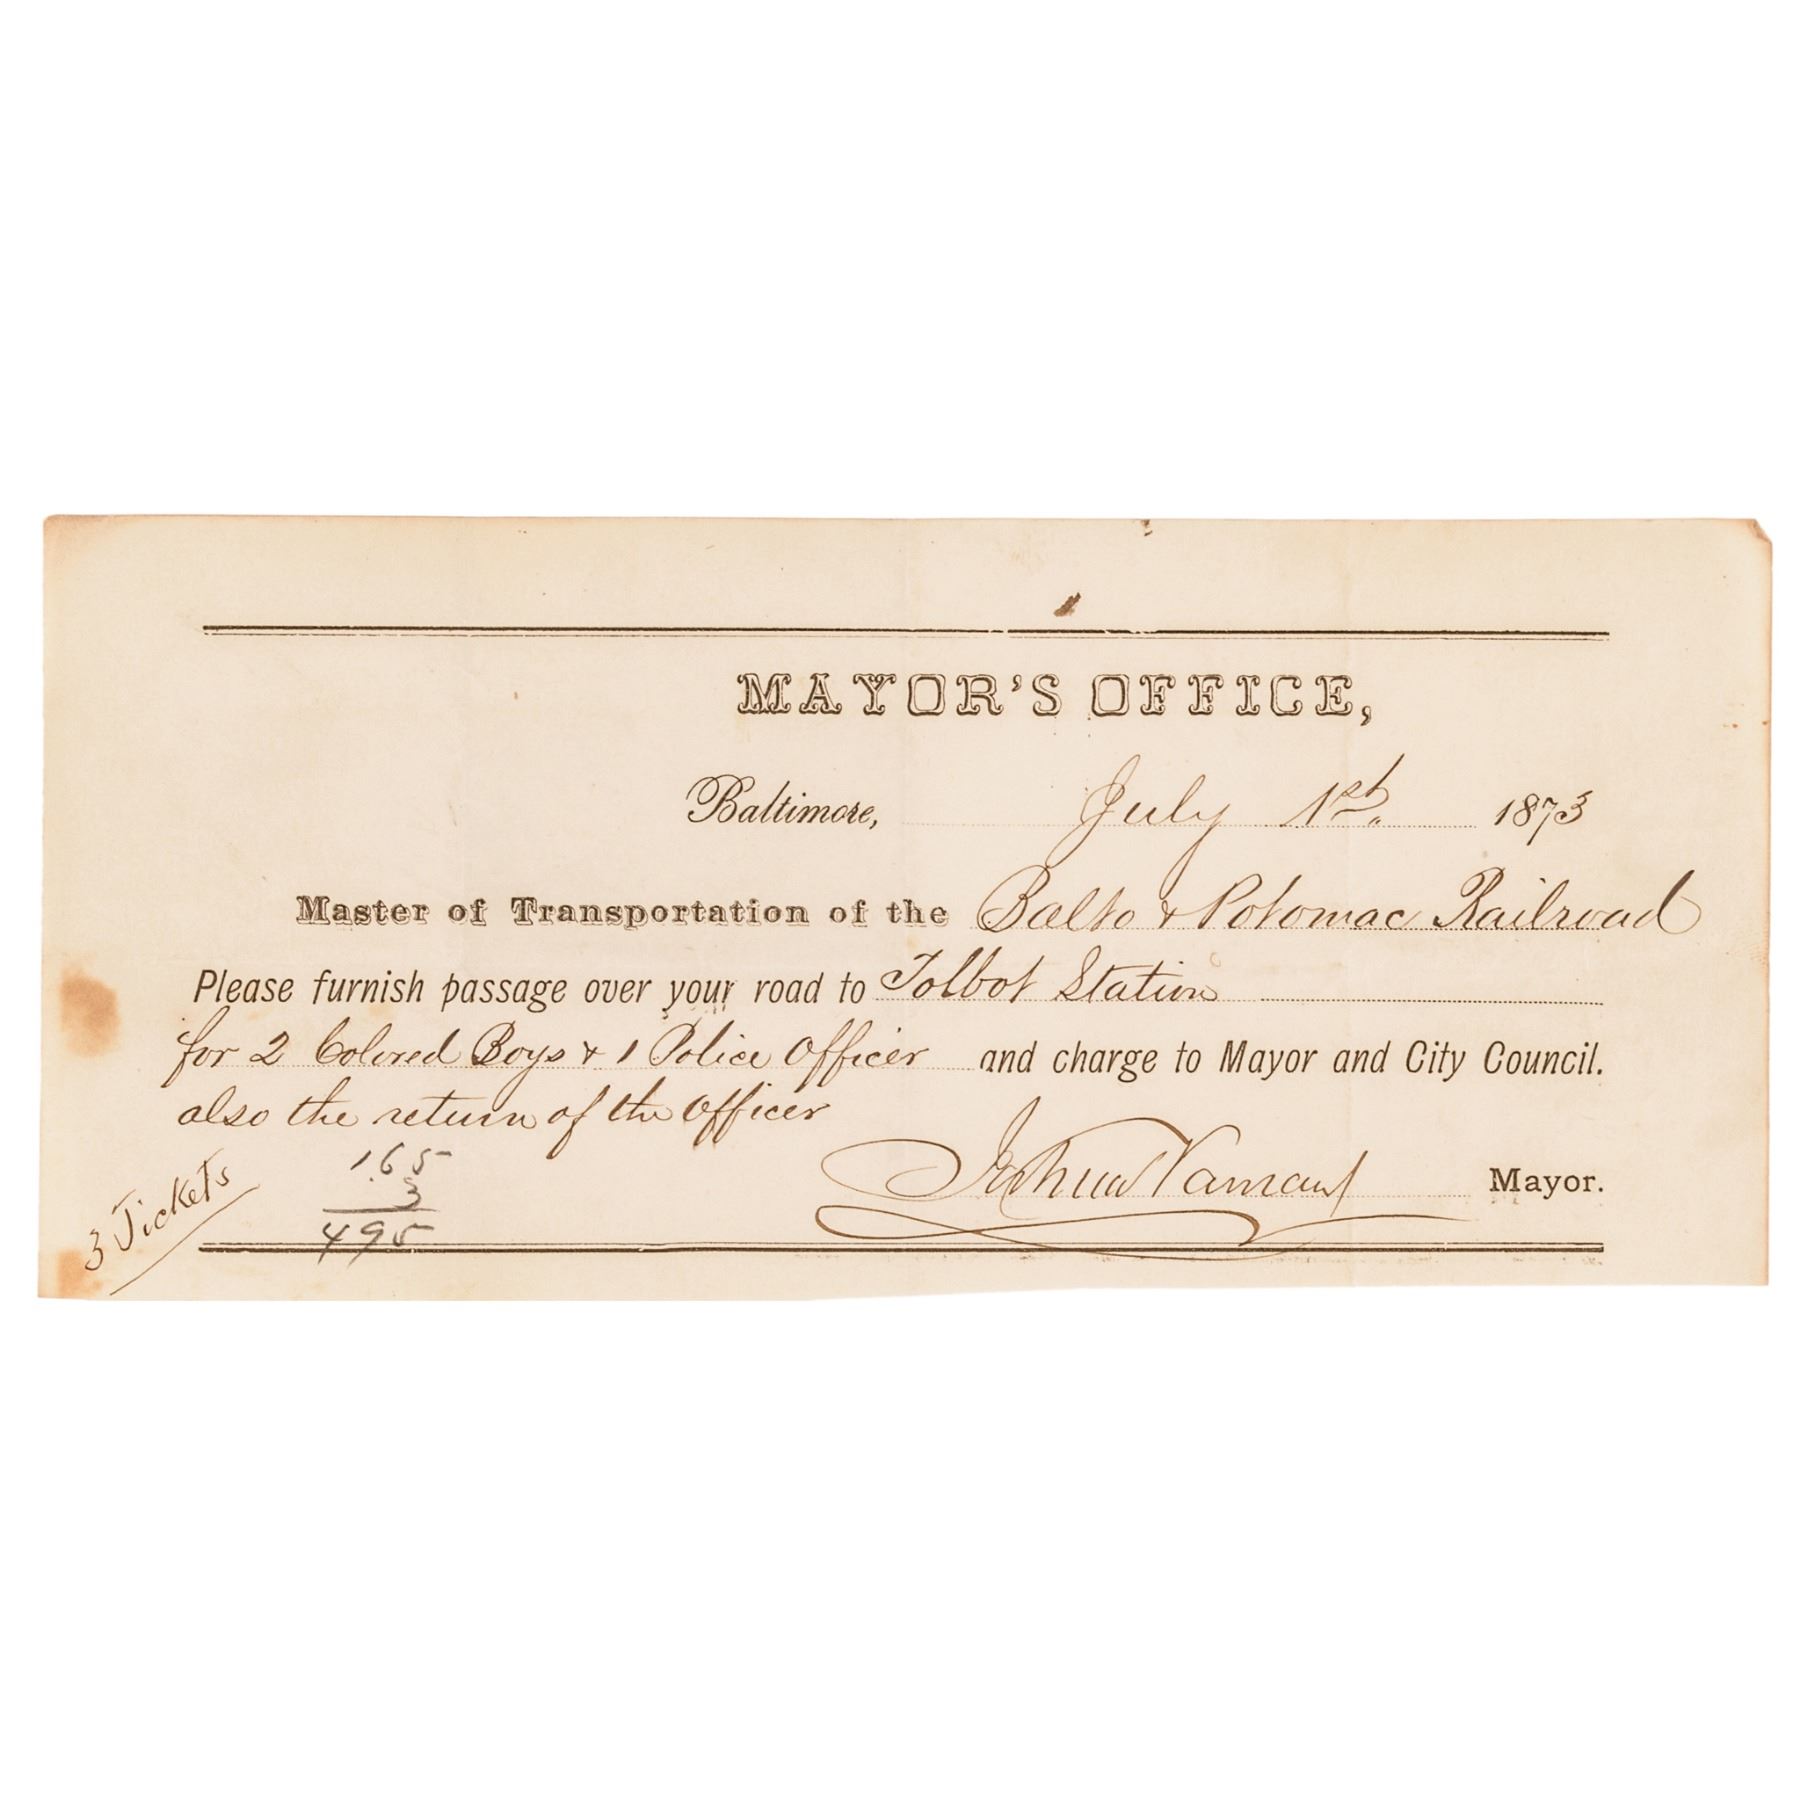 MAYOR'S OFFICE,
Baltimore, July 1st. 1873
Master of Transportation of the Balto & Potomac Railroad
Please furnish passage over your road to Tolbot Station
for 2 Colored Boys & 1 Police Officer and charge to Mayor and City Council.
also the return of the Officer
Joshua Vansant Mayor.
3 Tickets
1.65
3
495